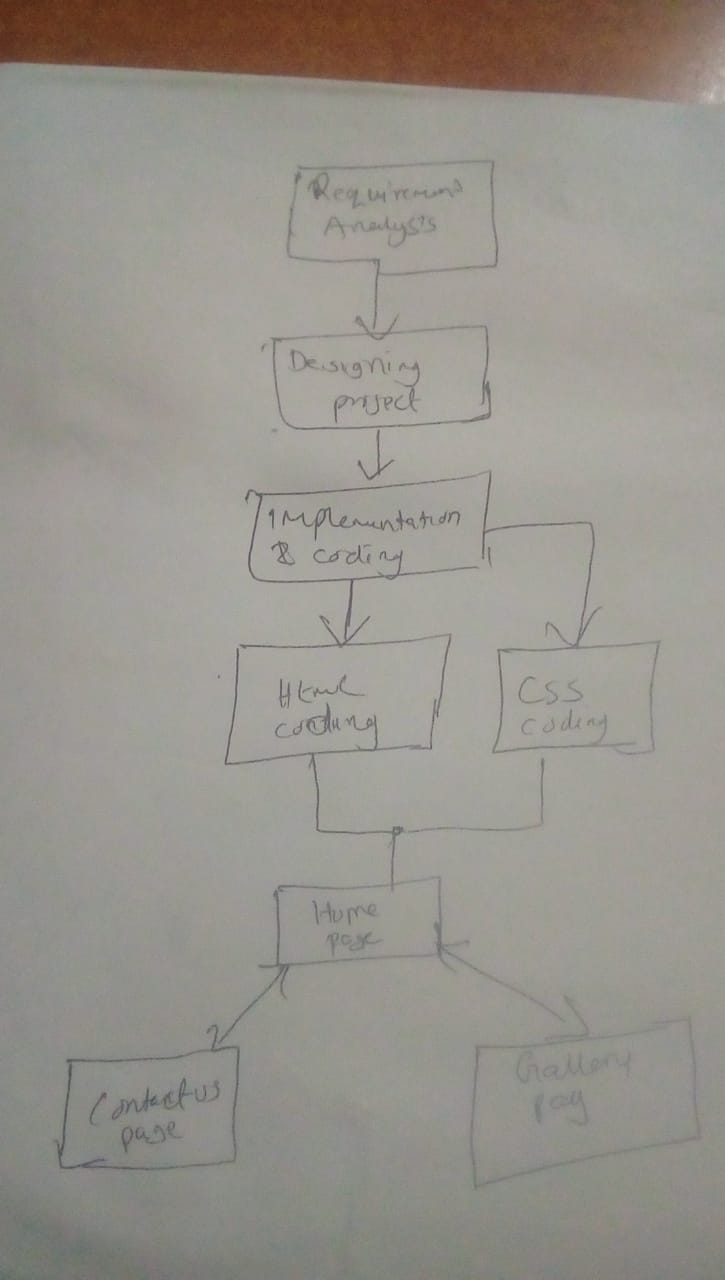 Requirement
Analysis
Designing
project
Implementation
& coding
Html
coding
CSS
coding
Home
page
Contact us
page
Gallery
pag